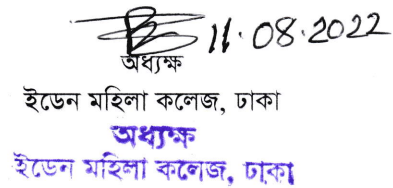 11.08.2022
অধ্যক্ষ
ইডেন মহিলা কলেজ, ঢাকা
অধ্যক্ষ
ইডেন মহিলা কলেজ, ঢাকা